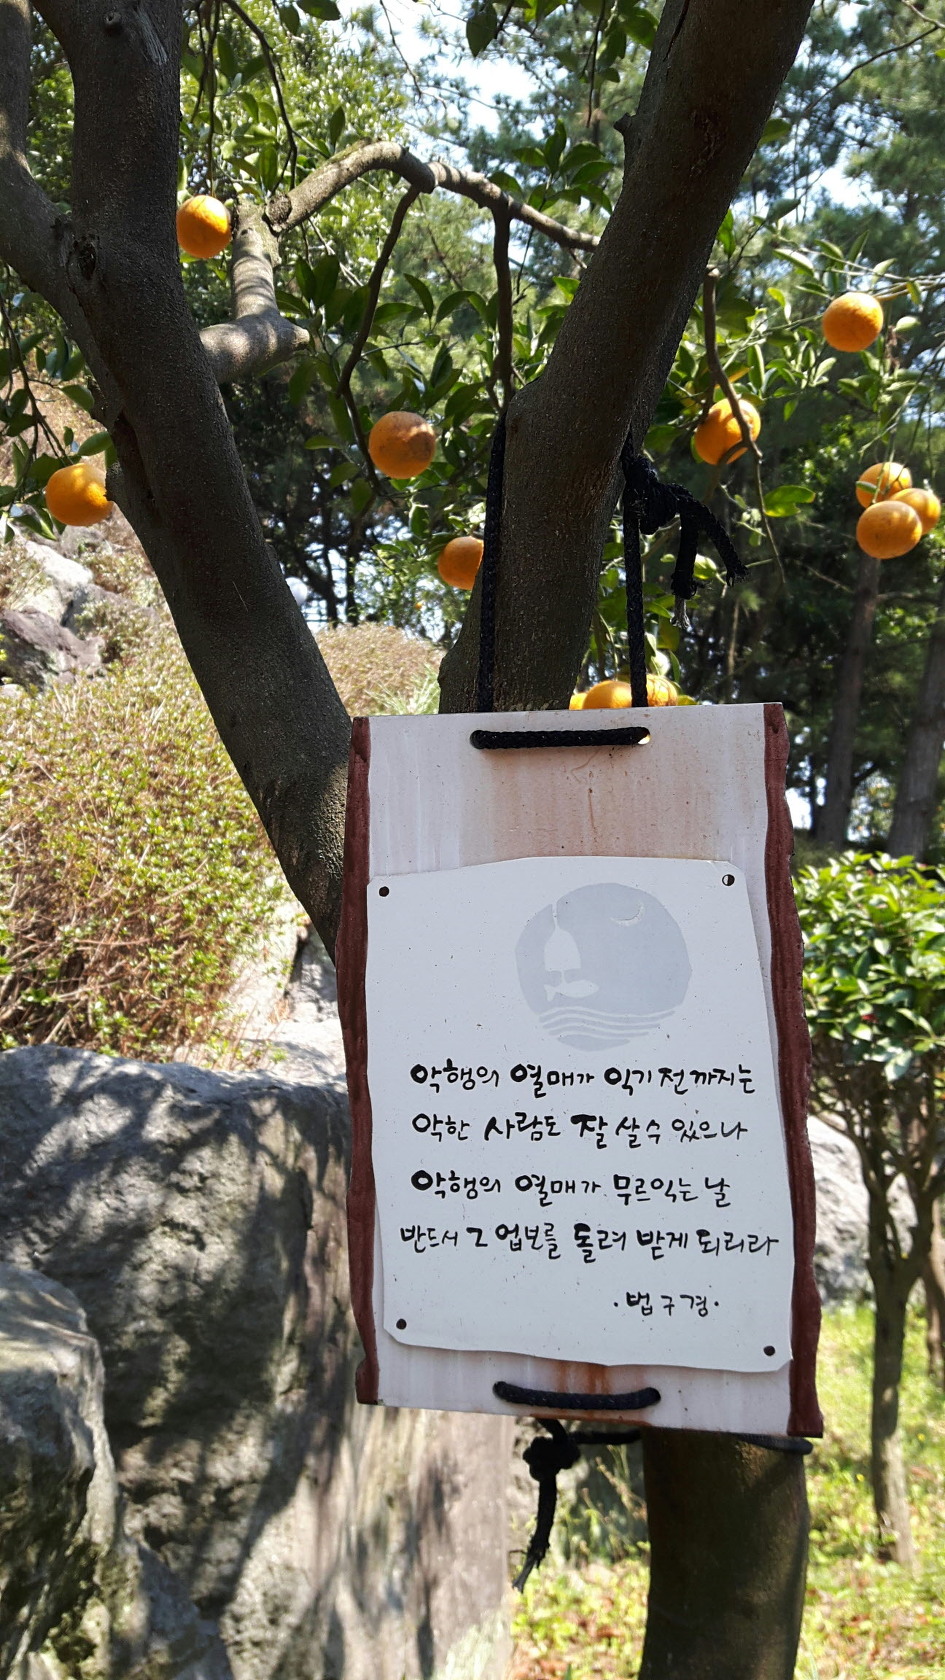 악행의 열매가 익기 전까지는
악한 사람도 잘 살 수 있으나
악행의 열매가 무르익는 날
반드시 그 업보를 돌려 받게 되리라
·법구경·